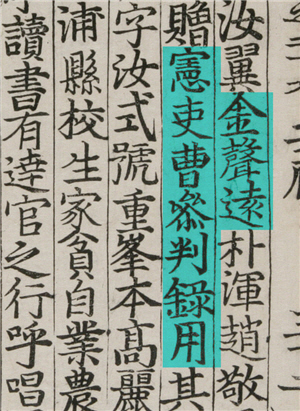 汝翼金聲遠朴渾趙敬
贈憲吏曹叅判錄用其
字汝式號重峯本高麗
浦縣校生家貧自業農
讀書有逹官之行呼唱